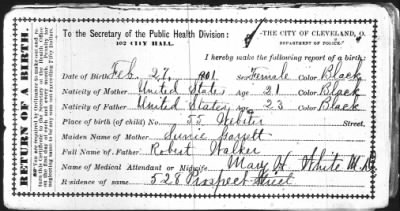 To the Secretary of the Public Health Division:
102 CITY HALL.
THE CITY OF CLEVELAND, O.
DEPARTMENT OF POLICE.
I hereby make the following report of a birth:
RETURN OF A BIRTH.
Date of Birth Feb. 27, 1901 Sex Female Color Black
Nativity of Mother United States Age 21 Color Black
Nativity of Father United States Age 23 Color Black
Place of birth (of child) No. 55 Webster Street,
Maiden Name of Mother Garrett
Full Name of Father Robert Walker
Name of Medical Attendant or Midwife Mary H. White M.D.
Residence of same 528 Prospect Street.